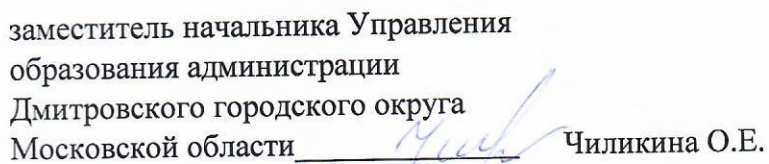 заместитель начальника Управления
образования администрации
Дмитровского городского округа
Московской области____________ Чиликина О.Е.